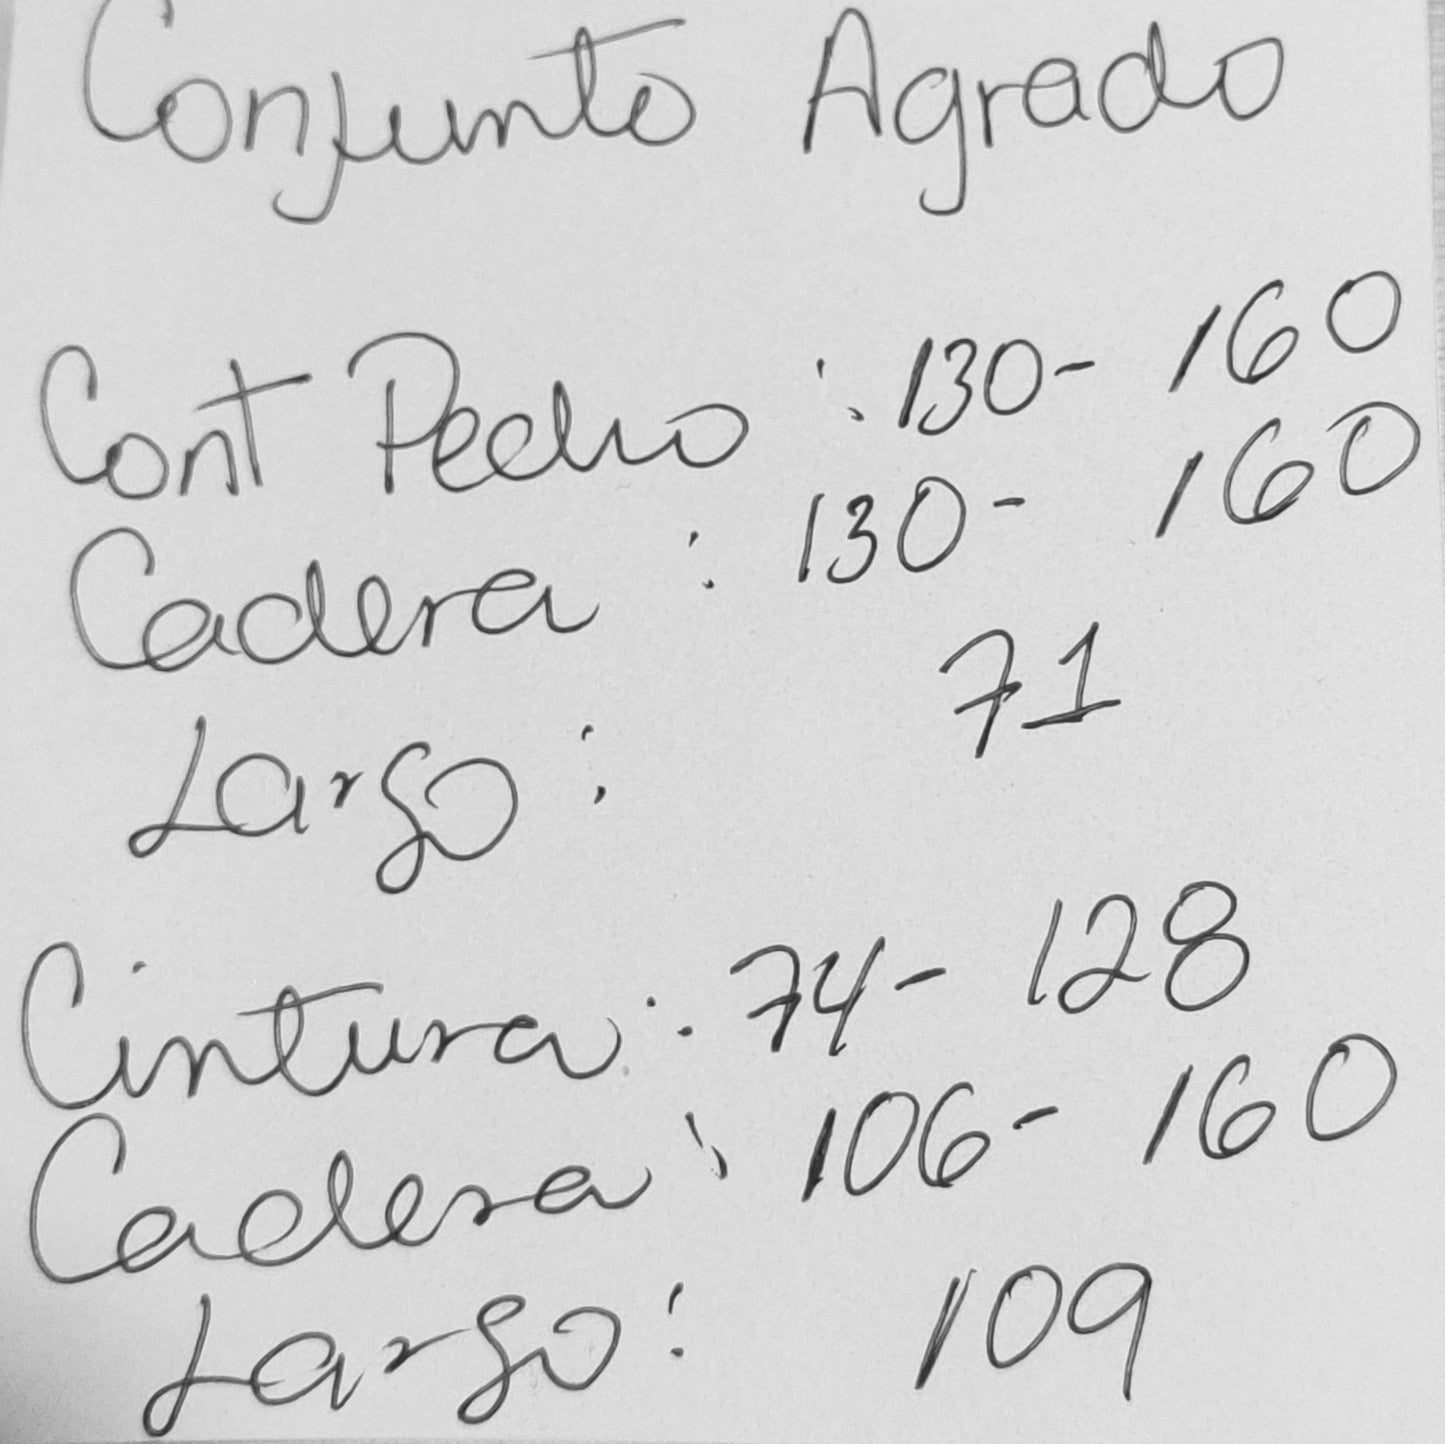 Conjunto Agrado
Cont Pecho : 130- 160
Cadera : 130- 160
Largo : 71
Cintura : 74- 128
Cadera : 106- 160
Largo : 109